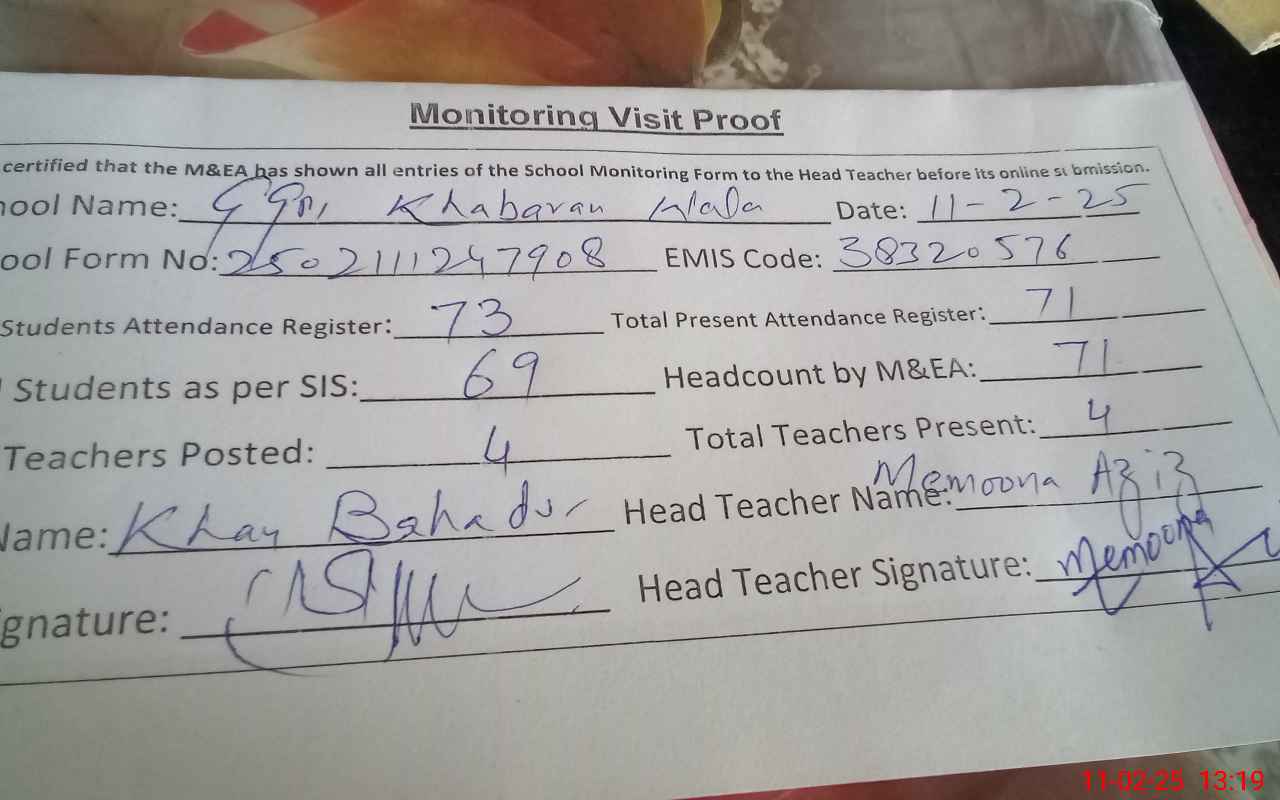 Monitoring Visit Proof
certified that the M&EA has shown all entries of the School Monitoring Form to the Head Teacher before its online submission.
hool Name: Khabaran Wala Date: 11-2-25
ool Form No: 2502111247908 EMIS Code: 38320576
Students Attendance Register: 73 Total Present Attendance Register: 71
Students as per SIS: 69 Headcount by M&EA: 71
Teachers Posted: 4 Total Teachers Present: 4
Name: Khan Bahadur Head Teacher Name: Memoona Aziz
ignature: Head Teacher Signature: Memoona
11-02-25 13:19